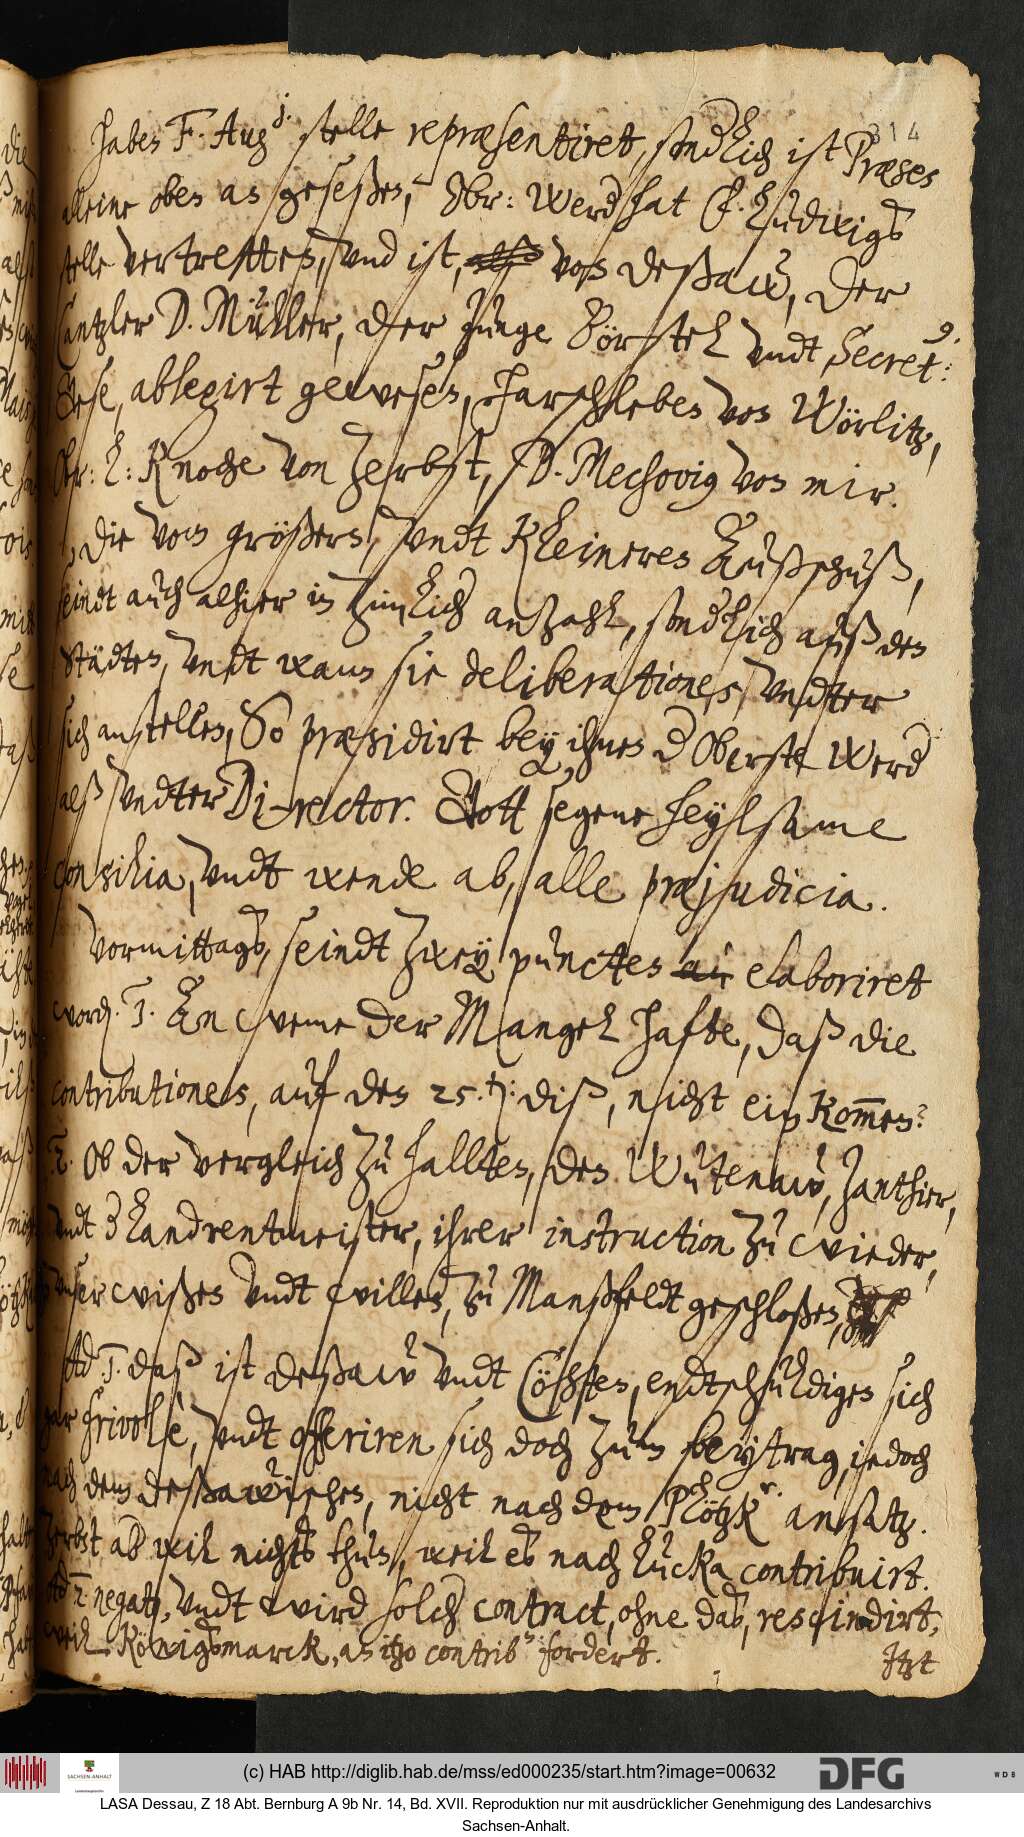 314
haben F. Aug: stelle repræsentiret, endtlich ist Præses
alleine oben an geseßen, Obr: Werder hat F. Ludwigs
stelle vertretten, vnd ist, von Deßaw, der
Cantzler D. Müller, der Junge Börstel vndt Secret:
Ese, ablegirt gewesen, Harschleben von Wörlitz,
Obr: L: Knoche von Zerbst, D. Mechovius von mir.
Die vom größern, vndt Kleineren Außschuß,
seindt auch alhier in zimlicher anzahl, sonderlich auß den
Städten, vndt wann sie deliberationes, vndter
sich anstellen, So præsidirt bey ihnen der Oberste Werder
alß vndter Director. Gott segene heylsame
consilia, vndt wende ab, alle præjudicia.
Vormittags, seindt zwey puncten elaboriret
word. 1. An weme der Mangel hafte, daß die
contributiones, auf den 25. diß, nicht ein kommen?
2. Ob der vergleich zu hallten, den Wutenaw, Zanthier,
vndt Landrentmeister, ihrer instruction zu wieder,
vnser wißen vndt willen, zu Manßfeldt geschloßen,
Ad 1. daß ist Deßaw vndt Cöhten, endtschuldigen sich
gar frivole, vndt offeriren sich doch zum beytrag, iedoch
nach dem Deßawischen, nicht nach dem Plötzk. ansatz.
Zerbst aber wil nichts thun, weil es nach Lucka contribuirt.
Ad 2. negatur, vndt wird solcher contract, ohne das, rescindirt,
weil Königsmarck, an itzo contrib: fordert.
Itzt
(c) HAB http://diglib.hab.de/mss/ed000235/start.htm?image=00632
SACHSEN-ANHALT
DFG
WDB
LASA Dessau, Z 18 Abt. Bernburg A 9b Nr. 14, Bd. XVII. Reproduktion nur mit ausdrücklicher Genehmigung des Landesarchivs
Sachsen-Anhalt.